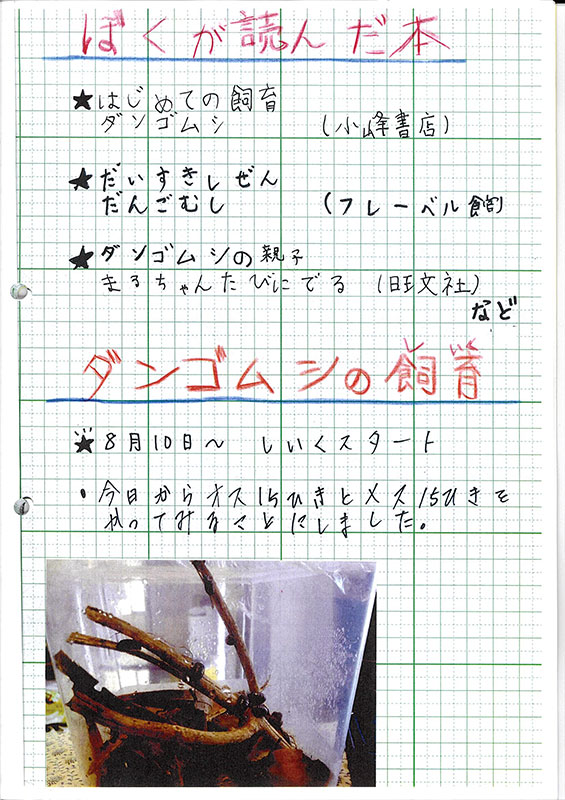 ぼくが読んだ本
★はじめての飼育
ダンゴムシ (小峰書店)
★だいすきしぜん
だんごむし (フレーベル館)
★ダンゴムシの親子
まるちゃんたびにでる (旺文社)
など
ダンゴムシの飼育
し いく
★8月10日～ しいくスタート
・今日からオス15ひきとメス15ひきを
やってみることにしました。